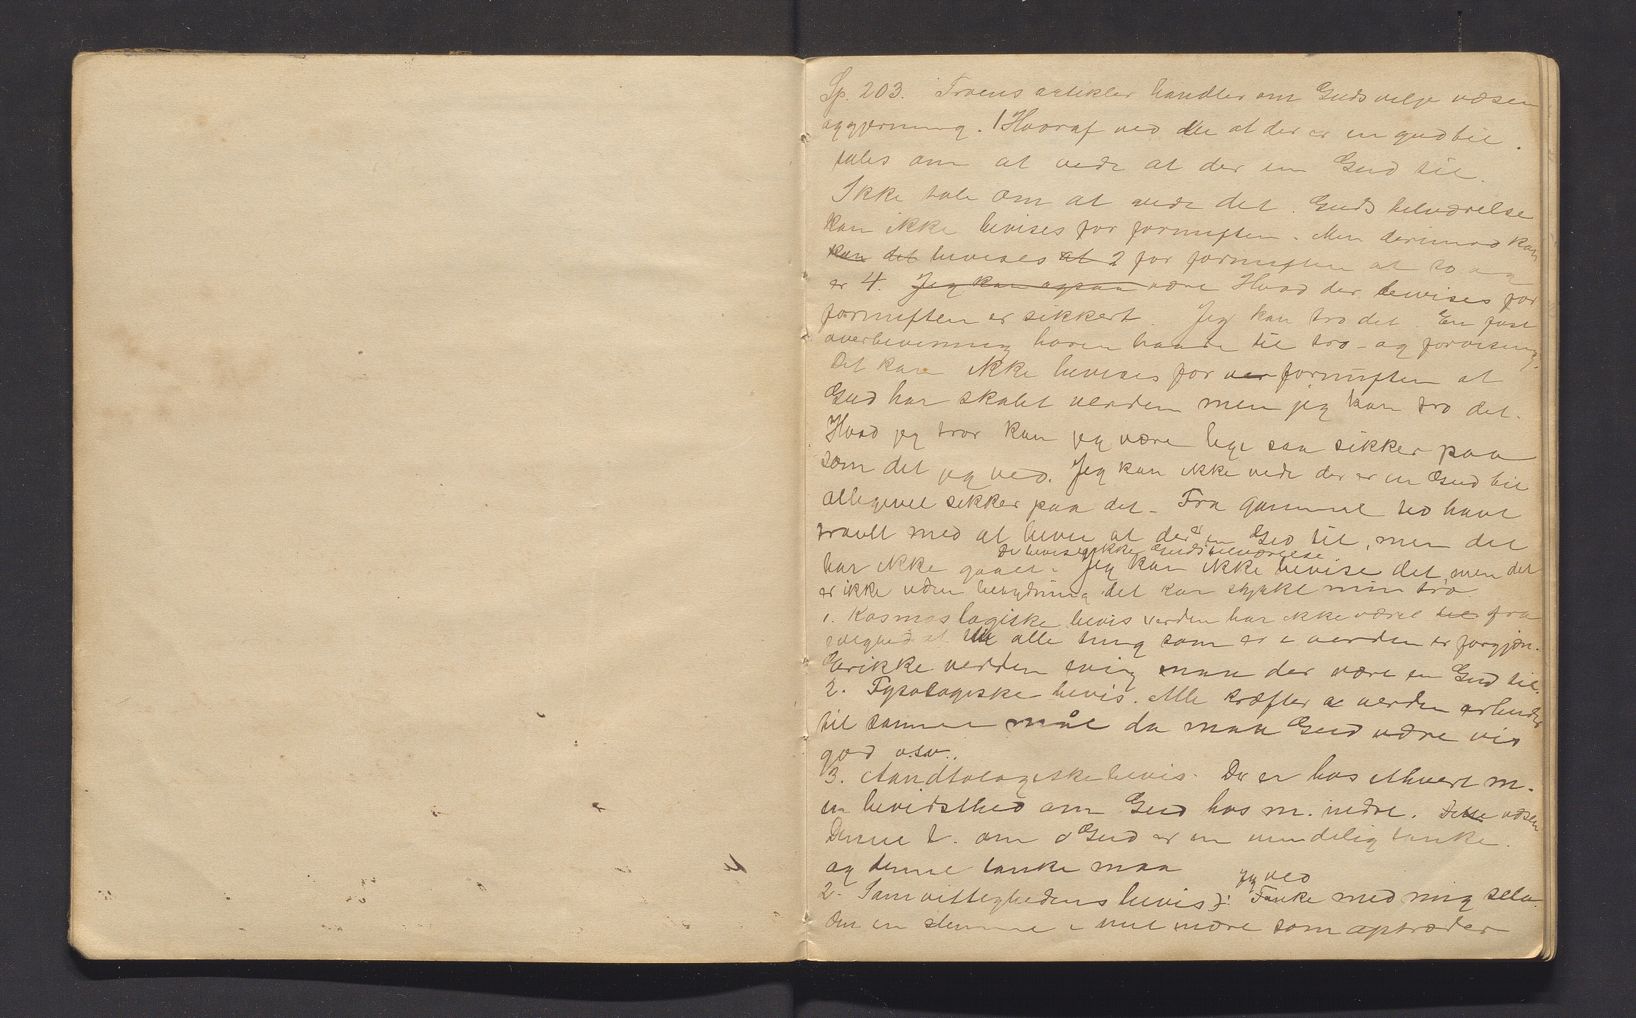 Sp. 203. Troens artikler handler om Guds velje væsen
og gjerning. 1 Hvoraf ved du at der er en gud til.
tales om at vide at der en Gud til.
Ikke tale om at vide det. Guds tilværelse
kan ikke bevises for fornuften. Men derimod kan
kan det bevises at 2 for fornuften at to og
er 4. Jeg kan ogsaa være Hvad der bevises for
fornuften er sikkert. Jeg kan tro det. En fast
overbevisning hører baade til tro og forvisning.
Det kan ikke bevises for ver fornuften at
Gud har skabt verden men jeg kan tro det.
Hvad jeg tror kan jeg være lige saa sikker paa
som det jeg ved. Jeg kan ikke vide der er en Gud til
alligevel sikker paa det. Fra gammel tid havt
travlt med at bevise at der er en Gud til, men det
De beviser ikke Guds tilværelse
har ikke gaaet. Jeg kan ikke bevise det, men det
er ikke uden betydning det kan styrke min tro.
1. Kosmoslogiske bevis verden har ikke været til fra
evighed at alle ting som er i verden er forgjæn.
Er ikke verden evig maa der være en Gud til.
2. Fysologiske bevis. Alle kræfter i verden arbeider
til samme mål da maa Gud være vis
god osv..
3. Aandtologiske bevis. Der er hos ethvert m.
en bevidsthed om Gud hos m. indre. Dette væsen
Denne t. om Gud er en uendelig tanke.
og denne tanke maa
jeg ved
2. Samvittighedens bevis): Tanke med mig selv
Om en stemme i mit indre som optræder